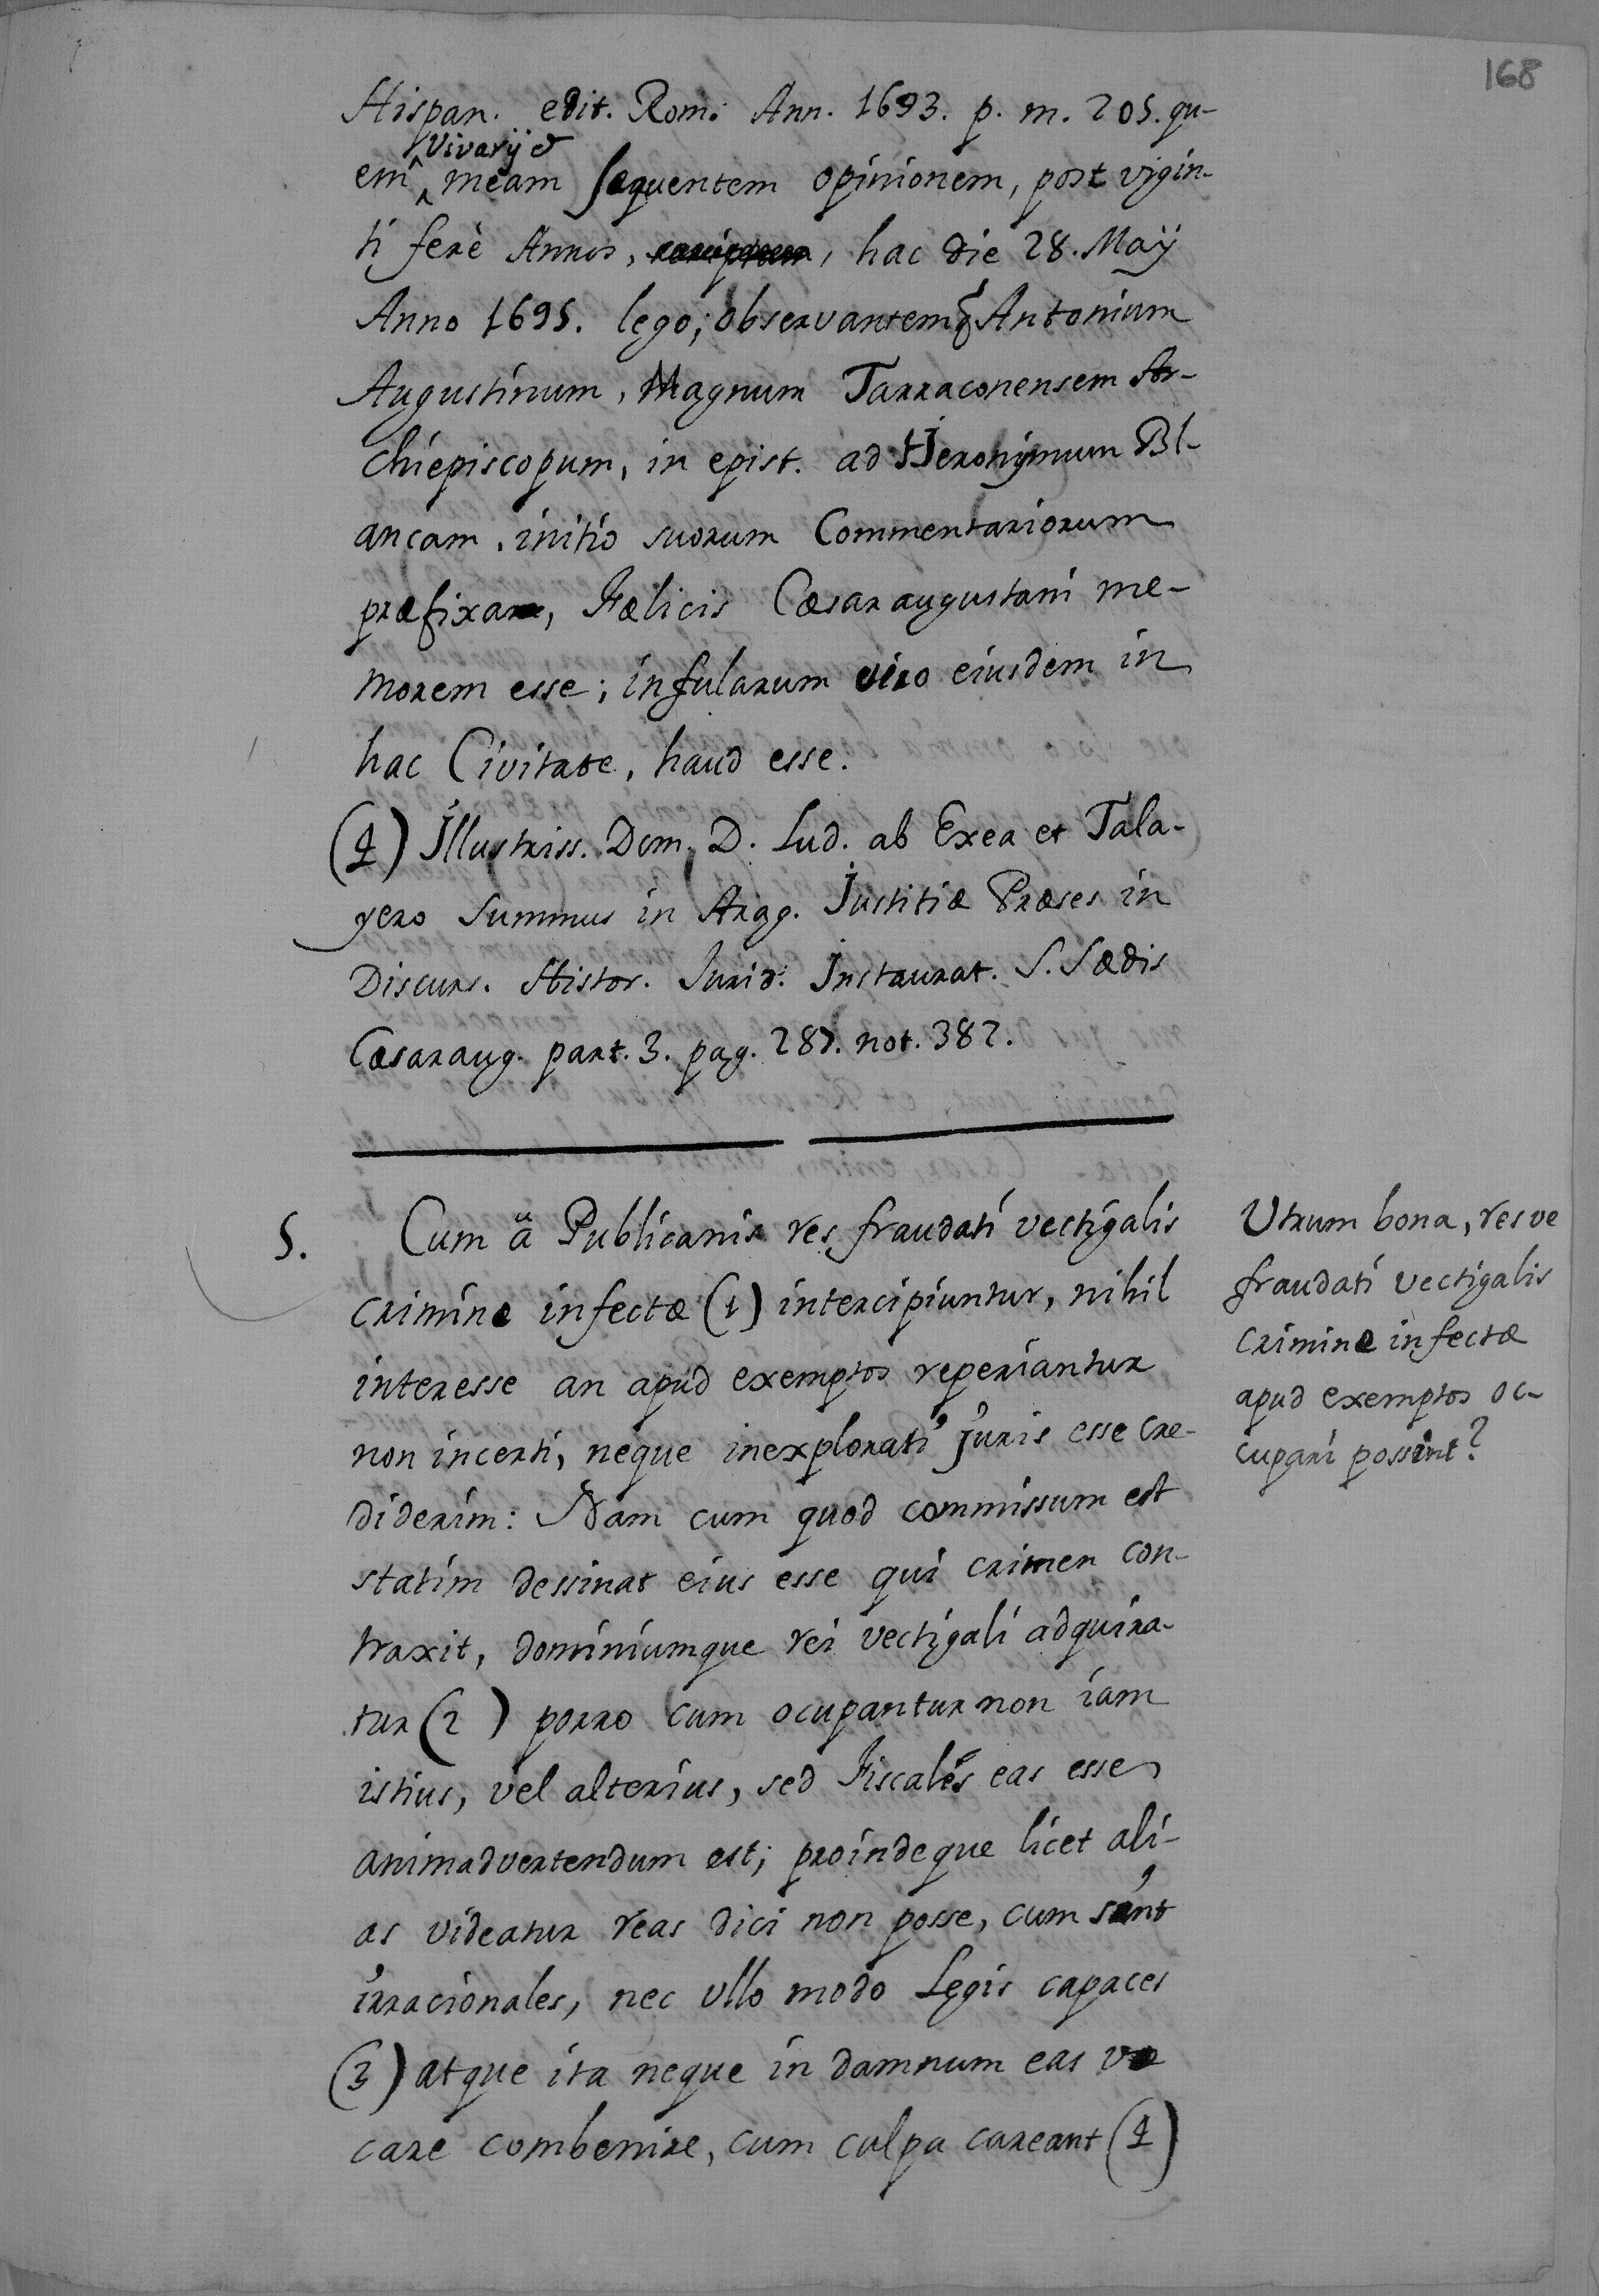 168
Hispan. edit. Rom. Ann. 1693. p. m. 205. qu-
Vivarij &
em meam sequentem opinionem, post vigin-
ti ferè Annos, , hac die 28. Maij
Anno 1695. lego; observantemq Antonium
Augustinum, Magnum Tarraconensem Ar-
chiepiscopum, in epist. ad Hieronymum Bl-
ancam, initio suorum Commentariorum
præfixam, Fælicis Cæsaraugustani me-
morem esse; infularum vero eiusdem in
hac Civitate, haud esse.
(4) Illustriss. Dom. D. Lud. ab Exea et Tala-
yero Summus in Arag. Justitiæ Præses in
Discurs. Histor. Jurid. Instaurat. S. Sædis
Cæsaraug. part. 3. pag. 287. not. 382.
5. Cum ã Publicanis res fraudati vectigalis
crimine infectæ (1) intercipiuntur, nihil
interesse an apud exemptos reperiantur
non incerti, neque inexplorati juris esse cre-
diderim: Nam cum quod commissum est
statim dessinat eius esse qui crimen con-
traxit, dominiumque rei vectigali adquira-
tur (2) porro cum ocupantur non iam
istius, vel alterius, sed Fiscales eas esse
animadvertendum est; proindeque licet ali-
as videatur reas dici non posse, cum sint
irracionales, nec ullo modo Legis capaces
(3) atque ita neque in damnum eas vo
care combenire, cum culpa careant (4)
Utrum bona, resve
fraudati vectigalis
crimine infectæ
apud exemptos oc-
cupari possint?